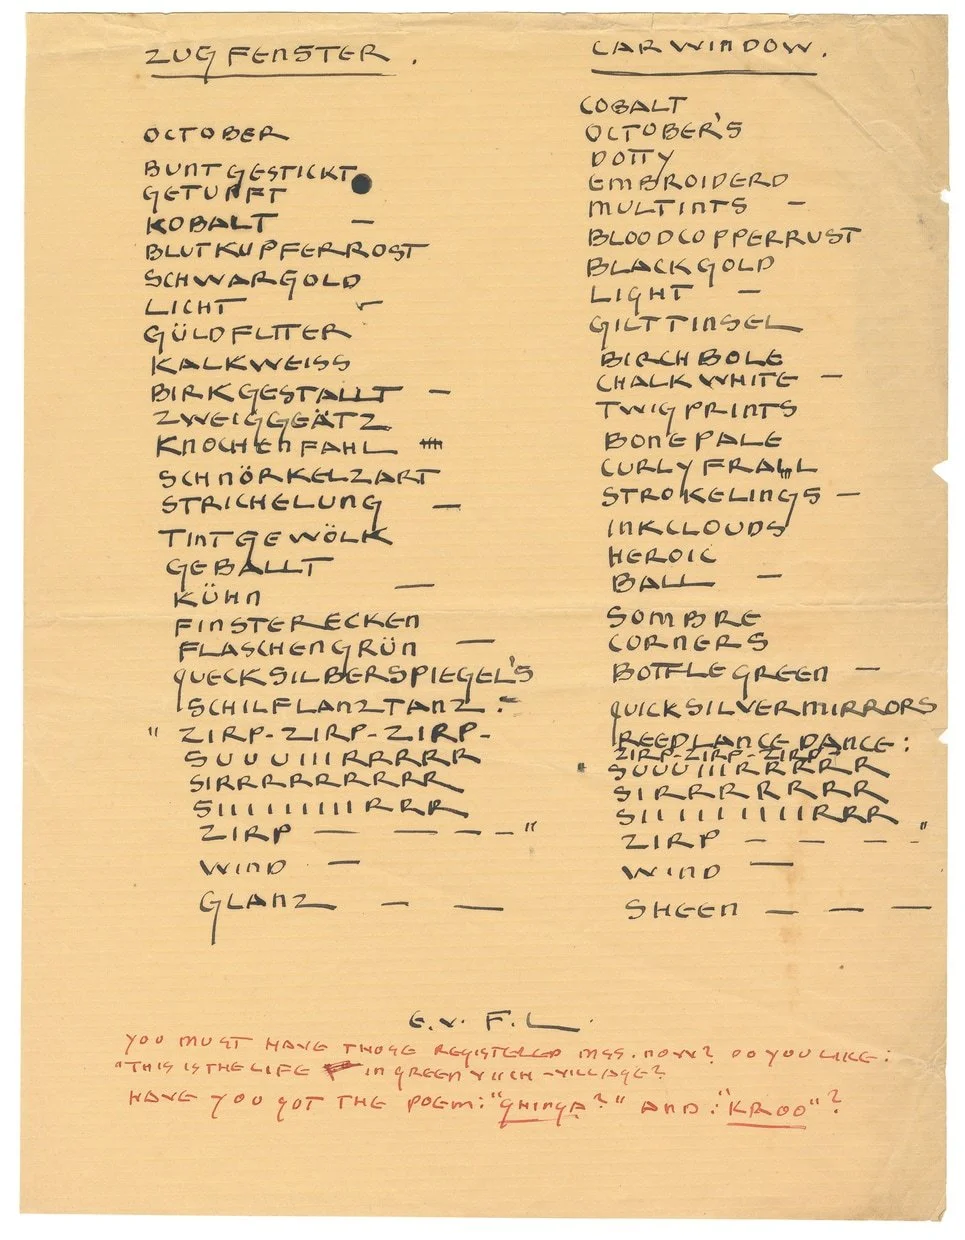 ZUGFENSTER.
OCTOBER
BUNTGESTICKT
GETUPFT
KOBALT —
BLUTKUPFERROST
SCHWARGOLD
LICHT –
GÜLDFLITTER
KALKWEISS
BIRKGESTALLT —
ZWEIGGEÄTZ
KNOCHENFAHL
SCHNÖRKELZART
STRICHELUNG —
TINTGEWÖLK
GEBALLT
KÜHN —
FINSTERECKEN
FLASCHENGRÜN —
QUECKSILBERSPIEGEL'S
SCHILFLANZTANZ: –
" ZIRP-ZIRP-ZIRP-
SUUUIIIRRRRRR
SIRRRRRRRRRR
SIIIIIIIIIRRR
ZIRP — — — – "
WIND —
GLANZ — —
CARWINDOW.
COBALT
OCTOBER'S
DOTTY
EMBROIDERD
MULTINTS —
BLOODCOPPERRUST
BLACKGOLD
LIGHT —
GILTTINSEL
BIRCHBOLE
CHALKWHITE —
TWIGPRINTS
BONEPALE
CURLYFRAIL
STROKELINGS —
INKCLOUDS
HEROIC
BALL —
SOMBRE
CORNERS
BOTTLEGREEN —
QUICKSILVERMIRRORS
REEDLANCEDANCE:
" ZIRP-ZIRP-ZIRP-
SUUUIIIRRRRRR
SIRRRRRRRRR
SIIIIIIIIIRRR
ZIRP — — — – "
WIND —
SHEEN — — —
E.v. F.L.
YOU MUST HAVE THOSE REGISTERED MSS. NOW? DO YOU LIKE:
"THIS IS THE LIFE IN GREENWICH-VILLAGE?
HAVE YOU GOT THE POEM: "GHINGA?" AND: "KROO"?